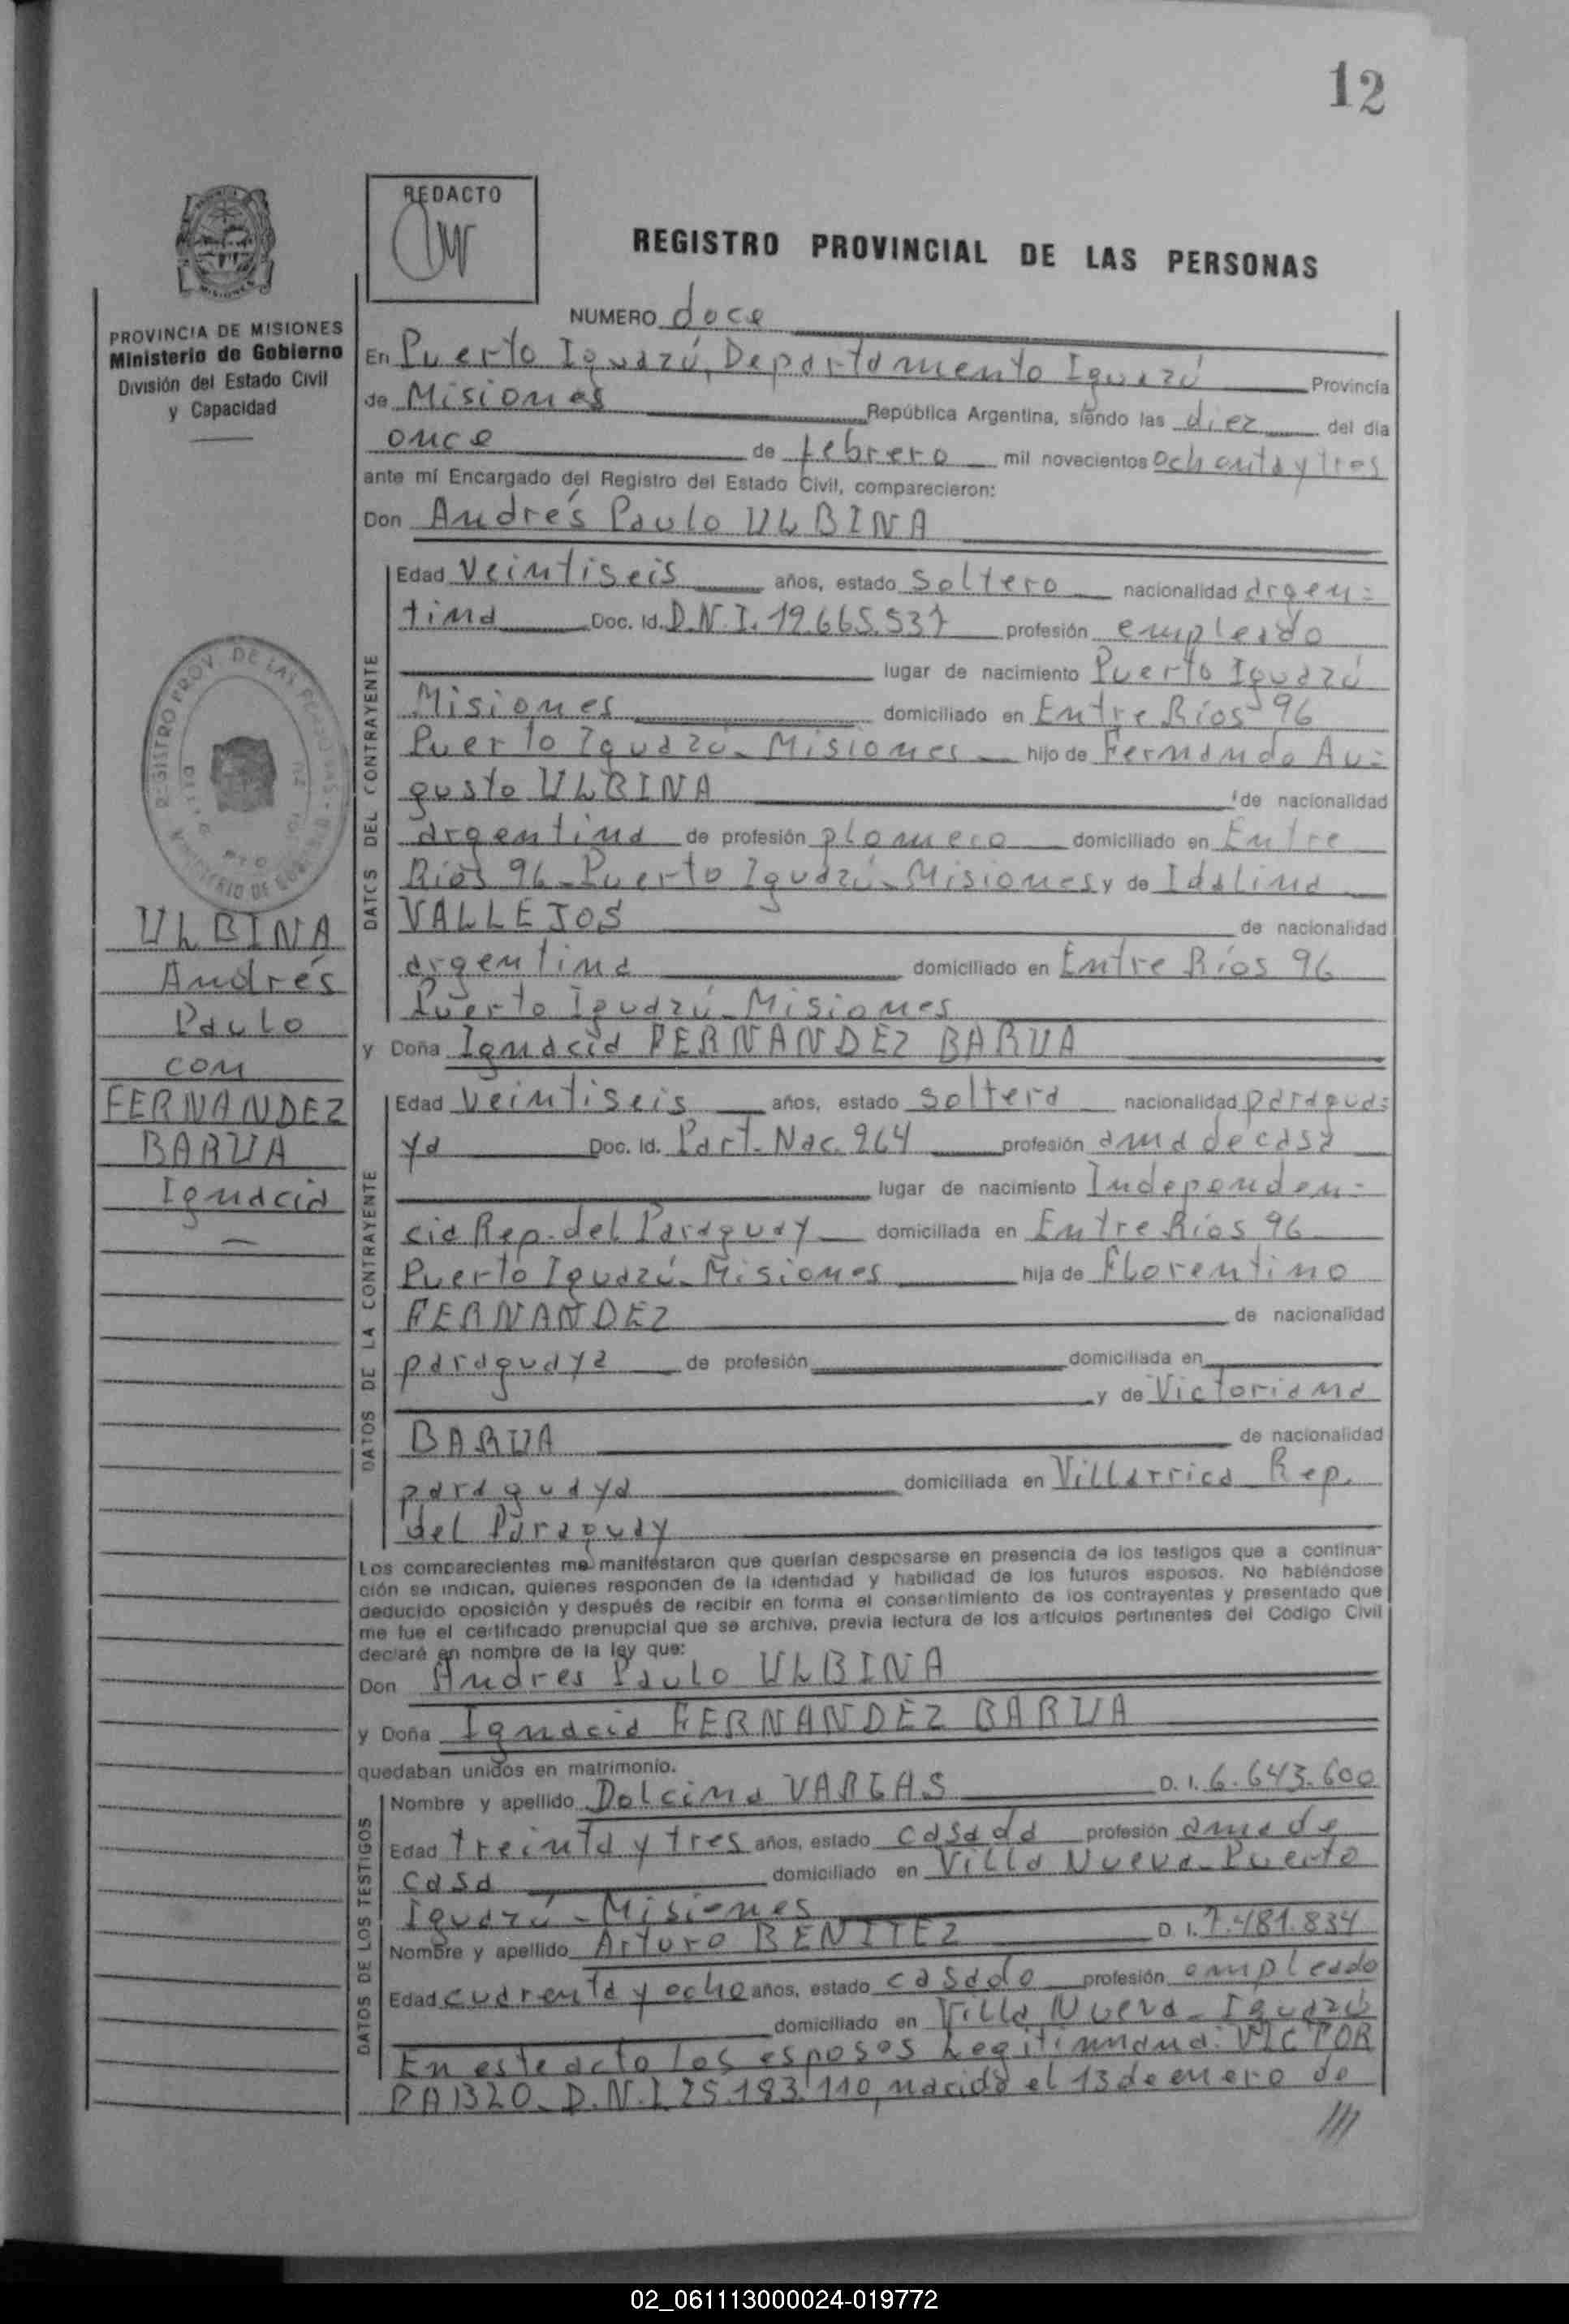 12
REDACTO
REGISTRO PROVINCIAL DE LAS PERSONAS
PROVINCIA DE MISIONES
Ministerio de Gobierno
División del Estado Civil
y Capacidad
NUMERO doce
En Puerto Iguazú, Departamento Iguazú Provincia
de Misiones República Argentina, siendo las diez del día
once de febrero mil novecientos ochenta y tres
ante mí Encargado del Registro del Estado Civil, comparecieron:
Don Andrés Paulo ULBINA
DATOS DEL CONTRAYENTE
Edad veintiseis años, estado soltero nacionalidad argen-
tina Doc. Id. D.N.I. 12.665.537 profesión empleado
lugar de nacimiento Puerto Iguazú
Misiones domiciliado en Entre Ríos 96
Puerto Iguazú - Misiones hijo de Fernando Au-
gusto ULBINA de nacionalidad
argentina de profesión plomero domiciliado en Entre
Ríos 96 - Puerto Iguazú - Misiones y de Idalina
VALLEJOS de nacionalidad
argentina domiciliado en Entre Ríos 96
Puerto Iguazú - Misiones
y Doña Ignacia FERNANDEZ BARUA
ULBINA
Andrés
Paulo
con
FERNANDEZ
BARUA
Ignacia
DATOS DE LA CONTRAYENTE
Edad veintiseis años, estado soltera nacionalidad paragua-
ya Doc. Id. Part. Nac. 264 profesión ama de casa
lugar de nacimiento Independen-
cia Rep. del Paraguay domiciliada en Entre Ríos 96
Puerto Iguazú - Misiones hija de Florentino
FERNANDEZ de nacionalidad
paraguaya de profesión domiciliada en
y de Victoriana
BARUA de nacionalidad
paraguaya domiciliada en Villarrica Rep.
del Paraguay
Los comparecientes me manifestaron que querían desposarse en presencia de los testigos que a continua-
ción se indican, quienes responden de la identidad y habilidad de los futuros esposos. No habiéndose
deducido oposición y después de recibir en forma el consentimiento de los contrayentes y presentado que
me fue el certificado prenupcial que se archiva, previa lectura de los artículos pertinentes del Código Civil
declaré en nombre de la ley que:
Don Andres Paulo ULBINA
y Doña Ignacia FERNANDEZ BARUA
quedaban unidos en matrimonio.
DATOS DE LOS TESTIGOS
Nombre y apellido Dolcima VARGAS D. I. 6.643.600
Edad treinta y tres años, estado casada profesión ama de
casa domiciliado en Villa Nueva - Puerto
Iguazú - Misiones
Nombre y apellido Arturo BENITEZ D. I. 7.481.834
Edad cuarenta y ocho años, estado casado profesión empleado
domiciliado en Villa Nueva - Iguazú
En este acto los esposos Legitiman a: VICTOR
PABLO - D.N.I. 25.183.110, nacido el 13 de enero de
///
02_061113000024-019772